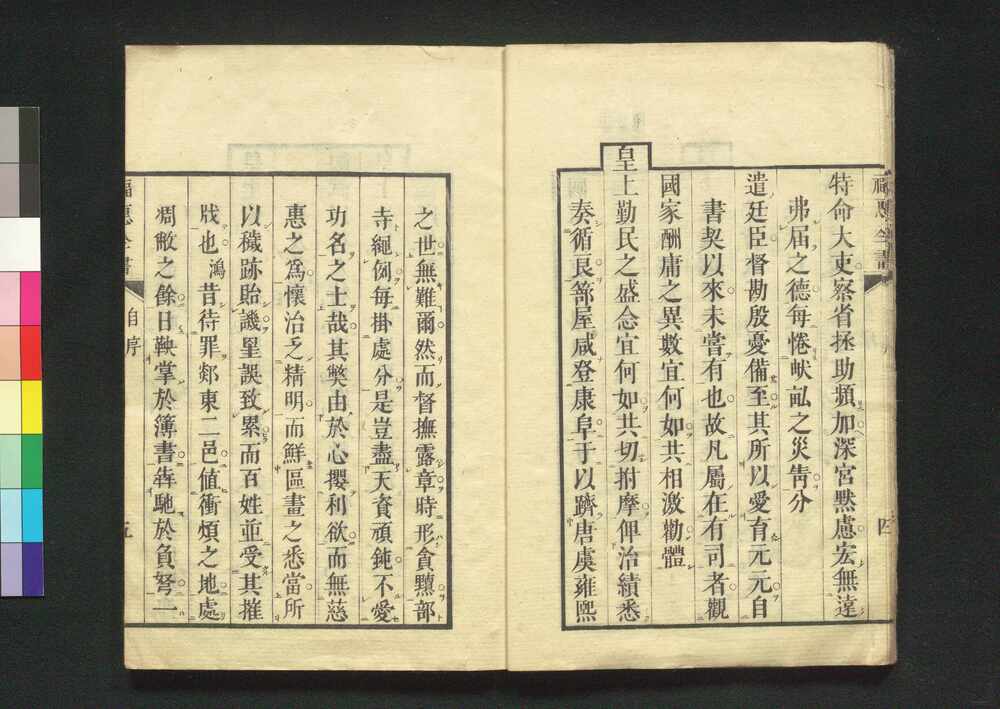 特命大吏察省拯助頻加深宮黙慮宏無遠
弗届之德每惓畎畝之災眚分
遣廷臣督勘殷憂備至其所以愛育元元自
書契以來未嘗有也故凡屬在有司者觀
國家酬庸之異數宜何如共相激勸體
皇上勤民之盛念宜何如共切拊摩俾治績悉
奏循良蔀屋咸登康阜于以躋唐虞雍熙
四
之世無難爾然而督撫露章時形貪黷部
寺繩例每掛處分是豈盡天資頑鈍不愛
功名之士哉其弊由於心攖利欲而無慈
惠之爲懷治乏精明而鮮區畫之悉當所
以穢跡貽譏罣誤致累而百姓並受其摧
戕也鴻昔待罪郯東二邑値衝煩之地處
凋敝之餘日鞅掌於簿書犇馳於負弩一
福惠全書
自序
五